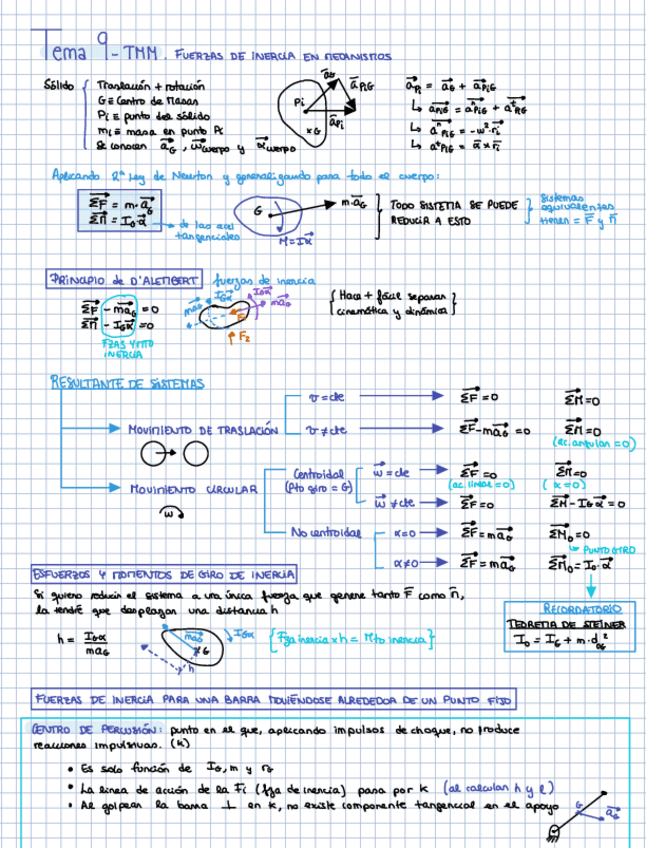 Tema 9 - TMM. FUERZAS DE INERCIA EN MECANISMOS
Sólido { Translación + rotación
G ≡ Centro de Masas
Pi ≡ punto del sólido
mi ≡ masa en punto Pi
Se conocen a_G, ω_cuerpo y α_cuerpo
Pi
xG
a_G
a_PiG
a_Pi
a_Pi = a_G + a_PiG
↳ a_PiG = aⁿ_PiG + aᵗ_PiG
↳ aⁿ_PiG = -ω²·r_i
↳ aᵗ_PiG = α x r_i
Aplicando 2ª Ley de Newton y generalizando para todo el cuerpo:
ΣF = m·a_G
ΣM = I_G·α
→ de las acel tangenciales
G
m·a_G
M = Iα
TODO SISTEMA SE PUEDE
REDUCIR A ESTO
Sistemas
equivalentes
tienen = F y M
PRINCIPIO de D'ALEMBERT
fuerzas de inercia
ΣF - ma_G = 0
ΣM - I_Gα = 0
FZAS Y MTO
INERCIA
ma_G
I_Gα
I_Gα
ma_G
F₂
{ Hace + fácil separar
cinemática y dinámica }
RESULTANTE DE SISTEMAS
MOVIMIENTO DE TRASLACIÓN
v = cte → ΣF = 0 ΣM = 0
v ≠ cte → ΣF - ma_G = 0 ΣM = 0
(ac. angular = 0)
MOVIMIENTO CIRCULAR
ω
Centroidal
(Pto giro = G)
ω = cte → ΣF = 0 ΣM = 0
(ac. lineal = 0) (α = 0)
ω ≠ cte → ΣF = 0 ΣM - I_Gα = 0
No centroidal
α = 0 → ΣF = ma_G ΣM_O = 0
↳ PUNTO GIRO
α ≠ 0 → ΣF = ma_G ΣM_O = I_O·α
ESFUERZOS Y MOMENTOS DE GIRO DE INERCIA
Si quiero reducir el sistema a una única fuerza que genere tanto F como M,
la tendré que desplazar una distancia h
h = I_Gα / ma_G
ma_G
xG
I_Gα
h
{ Fza inercia x h = Mto inercia }
RECORDATORIO
TEOREMA DE STEINER
I_O = I_G + m·d²_OG
FUERZAS DE INERCIA PARA UNA BARRA MOVIÉNDOSE ALREDEDOR DE UN PUNTO FIJO
CENTRO DE PERCUSIÓN: punto en el que, aplicando impulsos de choque, no produce
reacciones impulsivas. (K)
• Es solo función de I_G, m y r_G
• La línea de acción de la Fi (fza de inercia) pasa por K (al calcular h y l)
• Al golpear la barra ⊥ en K, no existe componente tangencial en el apoyo
G
a_G